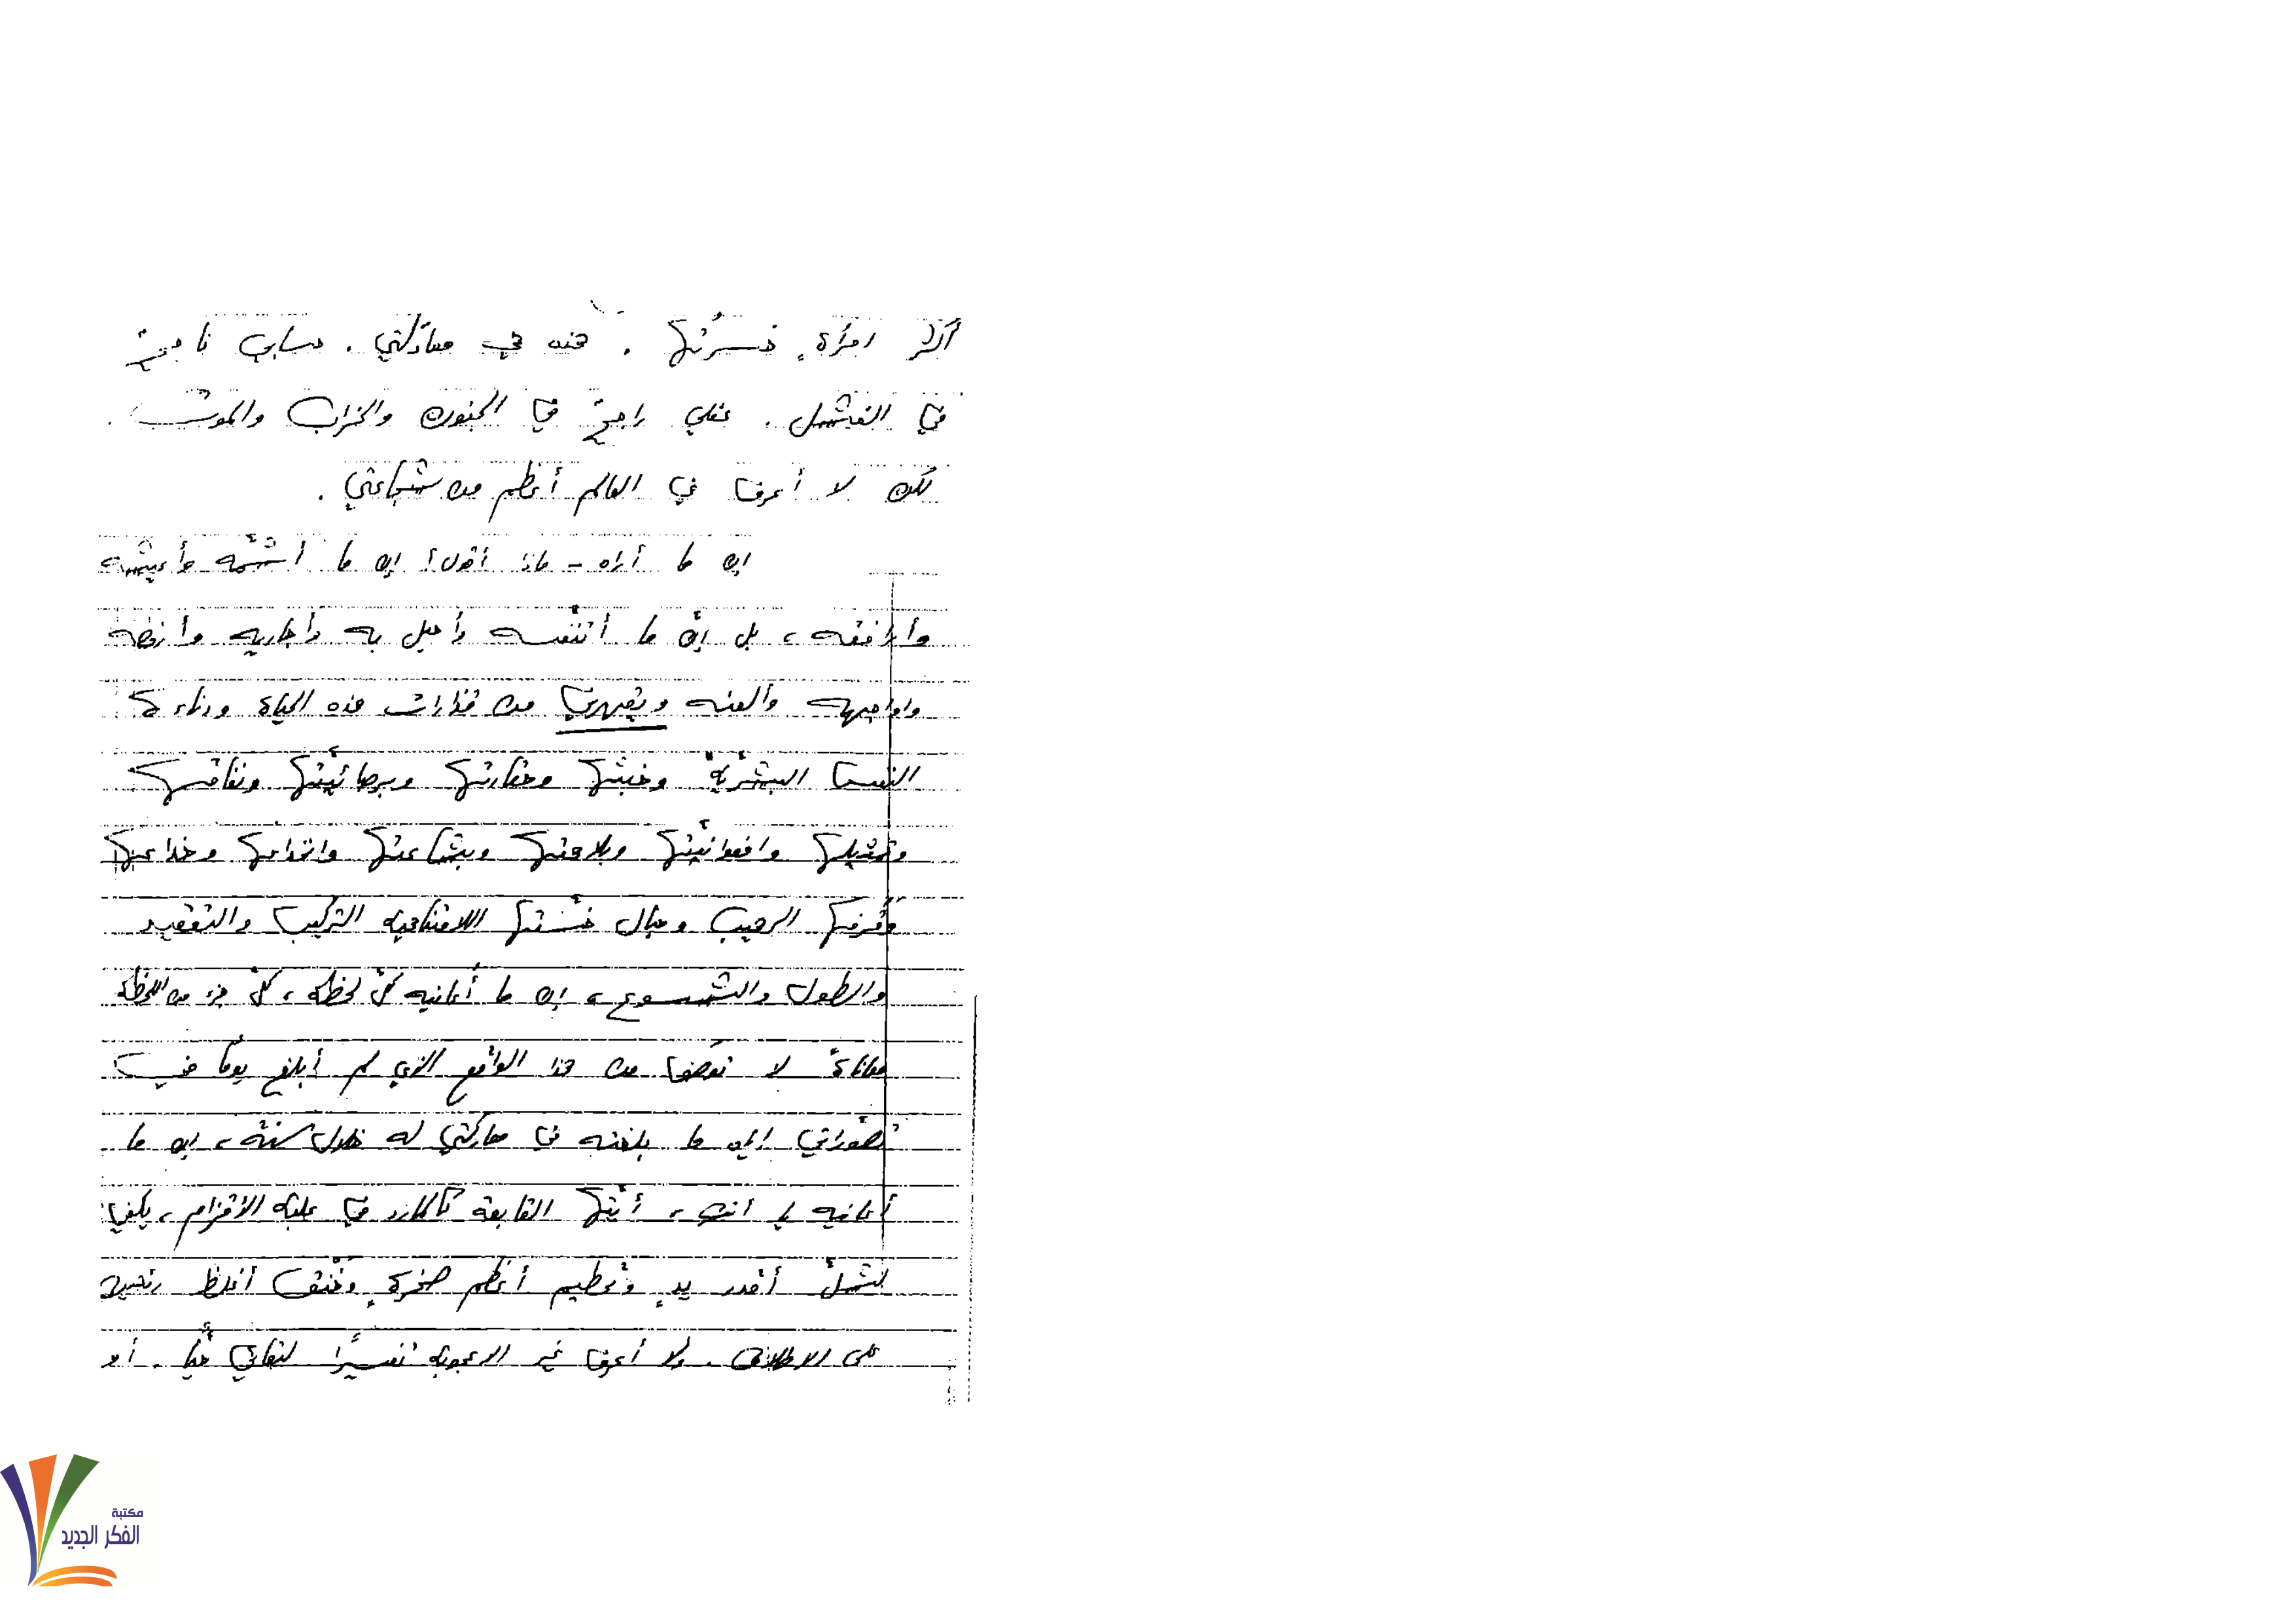 أكثر امرأةٍ خسرتُها. هذه هي معادلتي. حسابي ناجحٌ
في الفشل. عقلي راجحٌ في الجنون والخراب والموت.
لكن لا أعرف في العالم أعظم من شجاعتي.
إن ما أراه - ماذا أقول؟ إن ما أشمّه وأعيشه
وأرافقه، بل إنّ ما أتنفّسه وأحبل به وأحاربه وأرفضه
وأواجهه وألعنه ويقهرني من قذارات هذه الحياة ودناءة
النفس البشريّة وخبثها وحقارتها ونفاقها
وتمثيلها وافعوانيّتها وبلاهتها وبشاعتها وخداعها
الرهيب وحبال خسّتها اللامتناهية التركيب والتعقيد
والطول والشسوع، إن ما أعانيه كلّ لحظة، كلّ جزء من اللحظة
معاناةً لا توصف من هذا الواقع الذي لم أبلغ يومًا في
تصوّراتي إليه ما بلغته في معاركتي له خلال سنة، إن ما
أعانيه يا أنتِ، أيّتها القابعة كالمارد في علبة الأقزام، يكفي
لشلّ أقدر يدٍ وتحطيم أعظم صخرةٍ وخنق أغلظ
على الاطلاق. ولا أعرف غير الاعجوبة تفسيرًا لبقائي حيًّا. أو
مكتبة
الفكر الجديد